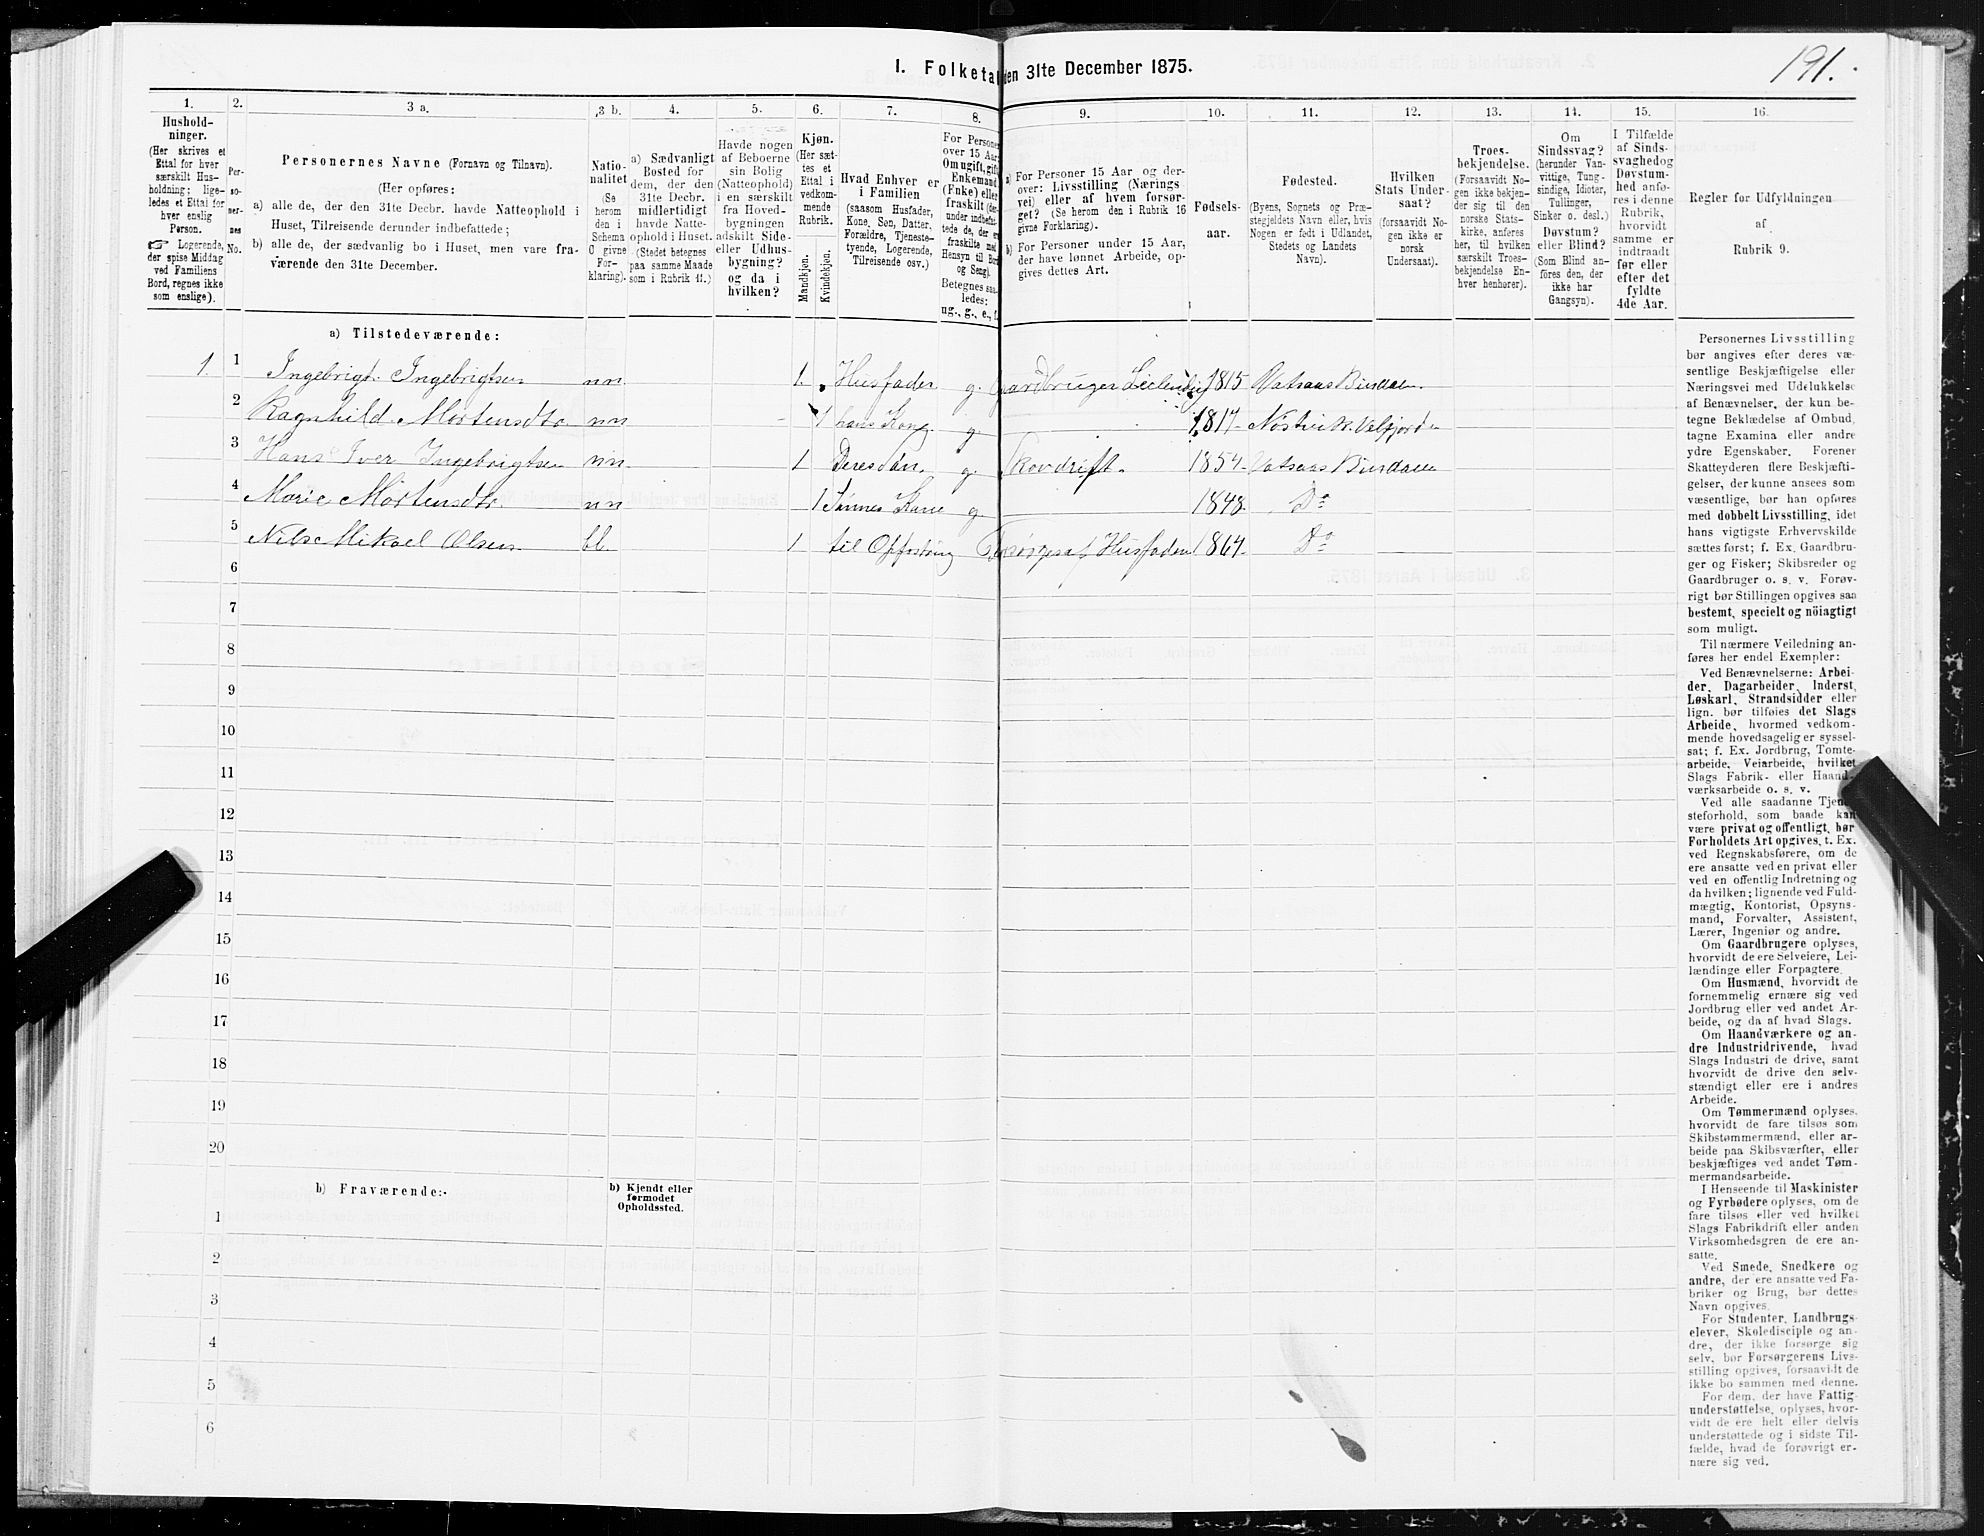 191.
I. Folketal den 31te December 1875.
1. 2. 3 a. 3 b. 4. 5. 6. 7. 8. 9. 10. 11. 12. 13. 14. 15. 16.
Hushold-
ninger.
(Her skrives et
Ettal for hver
særskilt Hus-
holdning; lige-
ledes et Ettal for
hver enslig
Person.
☞ Logerende,
der spise Middag
ved Familiens
Bord, regnes ikke
som enslige).
Per-
so-
ner-
nes
No.
Personernes Navne (Fornavn og Tilnavn).
(Her opføres:
a) alle de, der den 31te Decbr. havde Natteophold i
Huset, Tilreisende derunder indbefattede;
b) alle de, der sædvanlig bo i Huset, men vare fra-
værende den 31te December.
Natio-
nalitet
(Se
herom
den i
Schema
O givne
For-
klaring).
a) Sædvanligt
Bosted for
dem, der den
31te Decbr.
midlertidigt
havde Natte-
ophold i Huset.
(Stedet betegnes
paa samme Maade
som i Rubrik 11.)
Havde nogen
af Beboerne
sin Bolig
(Natteophold)
i en særskilt
fra Hoved-
bygningen
adskilt Side-
eller Udhus-
bygning?
og da i
hvilken?
Kjøn.
(Her sæt-
tes et
Ettal i
vedkom-
mende
Rubrik.
Mandkjøn.
Kvindekjøn.
Hvad Enhver er
i Familien
(saasom Husfader,
Kone, Søn, Datter,
Forældre, Tjeneste-
tyende, Logerende,
Tilreisende osv.)
For Personer
over 15 Aar:
Om ugift, gift,
Enkemand
(Enke) eller
fraskilt
Betegnes saa-
ledes:
ug., g., e., f.
a) For Personer 15 Aar og der-
over: Livsstilling (Nærings-
vei) eller af hvem forsør-
get? (Se herom den i Rubrik 16
givne Forklaring).
b) For Personer under 15 Aar,
der have lønnet Arbeide, op-
gives dettes Art.
Fødsels-
aar.
Fødested.
(Byens, Sognets og Præ-
stegjeldets Navn eller, hvis
Nogen er født i Udlandet,
Stedets og Landets
Navn).
Hvilken
Stats Under-
saat?
(forsaavidt No-
gen ikke er
norsk
Undersaat).
Troes-
bekjendelse.
(Forsaavidt No-
gen ikke bekjen-
der sig til den
norske Stats-
kirke, anføres
her, til hvilken
særskilt Troes-
bekjendelse En-
hver henhører).
Om
Sindssvag?
(herunder Van-
vittige, Tung-
sindige, Idioter,
Tullinger,
Sinker o. desl.)
Døvstum?
eller Blind?
(Som Blind an-
føres den, der
ikke har
Gangsyn).
I Tilfælde
af Sinds-
svaghed og
Døvstum-
hed anfø-
res i denne
Rubrik,
hvorvidt
samme er
indtraadt
før eller
efter det
fyldte
4de Aar.
Regler for Udfyldningen
af
Rubrik 9.
a) Tilstedeværende:
1. 1 Ingebrigt Ingebrigtsen nn. 1. Husfader g. Gaardbruger Leilending 1815 Vatsaas Bindalen
2 Ragnhild Mortensdtr nn 1 hans Kone g. 1817 Nøstvik Velfjorden
3 Hans Iver Ingebrigtsen nn. 1 Deres Søn g. Skovdrift. 1854. Vatsaas Bindalen
4 Marie Mortensdtr. nn 1 Sønnes Kone g. 1848. Do
5 Nils Mikael Olsen bl. 1 til Opfostring Forsørges af Husfaderen 1864. Do
6
7
8
9
10
11
12
13
14
15
16
17
18
19
20
b) Fraværende:
b) Kjendt eller
formodet
Opholdssted.
1
2
3
4
5
6
Personernes Livsstilling
bør angives efter deres væ-
sentlige Beskjæftigelse eller
Næringsvei med Udelukkelse
af Benævnelser, der kun be-
tegne Beklædelse af Ombud,
tagne Examina eller andre
ydre Egenskaber. Forener
Skatteyderen flere Beskjæfti-
gelser, der kunne ansees som
væsentlige, bør han opføres
med dobbelt Livsstilling, idet
hans vigtigste Erhvervskilde
sættes først; f. Ex. Gaardbru-
ger og Fisker; Skibsreder og
Gaardbruger o. s. v. Forøv-
rigt bør Stillingen opgives saa
bestemt, specielt og nöiagtigt
som muligt.
Til nærmere Veiledning an-
føres her endel Exempler:
Ved Benævnelserne: Arbei-
der, Dagarbeider, Inderst,
Løskarl, Strandsidder eller
lign. bør tilføies det Slags
Arbeide, hvormed vedkom-
mende hovedsagelig er syssel-
sat; f. Ex. Jordbrug, Tomte-
arbeide, Veiarbeide, hvilket
Slags Fabrik- eller Haand-
værksarbeide o. s. v.
Ved alle saadanne Tjene-
steforhold, som baade kan
være privat og offentligt, bør
Forholdets Art opgives, t. Ex.
ved Regnskabsførere, om de
ere ansatte ved en privat eller
ved en offentlig Indretning og
da hvilken; lignende ved Fuld-
mægtig, Kontorist, Opsyns-
mand, Forvalter, Assistent,
Lærer, Ingeniør og andre.
Om Gaardbrugere oplyses,
hvorvidt de ere Selveiere, Lei-
lændinge eller Forpagtere.
Om Husmænd, hvorvidt de
fornemmelig ernære sig ved
Jordbrug eller ved andet Ar-
beide, og da af hvad Slags.
Om Haandværkere og an-
dre Industridrivende, hvad
Slags Industri de drive, samt
hvorvidt de drive den selv-
stændigt eller ere i andres
Arbeide.
Om Tømmermænd oplyses,
hvorvidt de fare tilsøs som
Skibstømmermænd, eller ar-
beide paa Skibsværfter, eller
beskjæftiges ved andet Tøm-
mermandsarbeide.
I Henseende til Maskinister
og Fyrbødere oplyses, om de
fare tilsøs eller ved hvilket
Slags Fabrikdrift eller anden
Virksomhedsgren de ere an-
satte.
Ved Smede, Snedkere og
andre, der ere ansatte ved Fa-
briker og Brug, bør dettes
Navn opgives.
For Studenter, Landbrugs-
elever, Skoledisciple og an-
dre, der ikke forsørge sig
selv, bør Forsørgerens Livs-
stilling opgives, forsaavidt de
ikke bo sammen med denne.
For dem, der have Fattig-
understøttelse, oplyses, hvor-
vidt de ere helt eller delvis
understøttede og i sidste Til-
fælde, hvad de forøvrigt er-
nære sig ved.